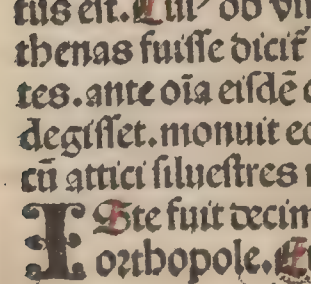 tus eſt. Cui' ob vi
thenas fuiſſe dicit̃
tes. ante oĩa eiſdē
degiſſet. monuit eo
cū attici ſilueſtres
I Ste fuit decim
orthopole. Et